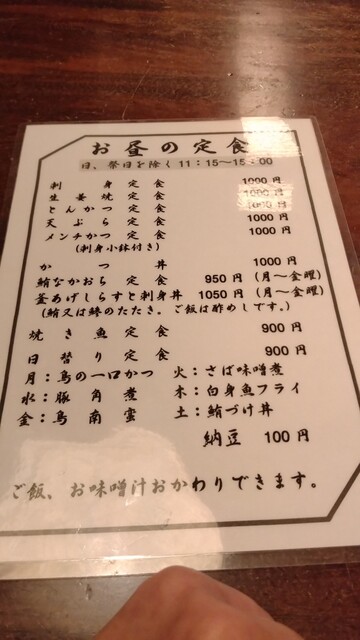 お昼の定食
日、祭日を除く11:15～15:00
刺身定食 1000円
生姜焼定食 1000円
とんかつ定食 1000円
天ぷら定食 1000円
メンチかつ定食 1000円
(刺身小鉢付き)
かつ丼 1000円
鮪なかおち定食 950円(月～金曜)
釜あげしらすと刺身丼 1050円(月～金曜)
(鮪又は鯵のたたき。ご飯は酢めしです。)
焼き魚定食 900円
日替り定食 900円
月:鳥の一口かつ 火:さば味噌煮
水:豚角煮 木:白身魚フライ
金:鳥南蛮 土:鮪づけ丼
納豆 100円
ご飯、お味噌汁おかわりできます。